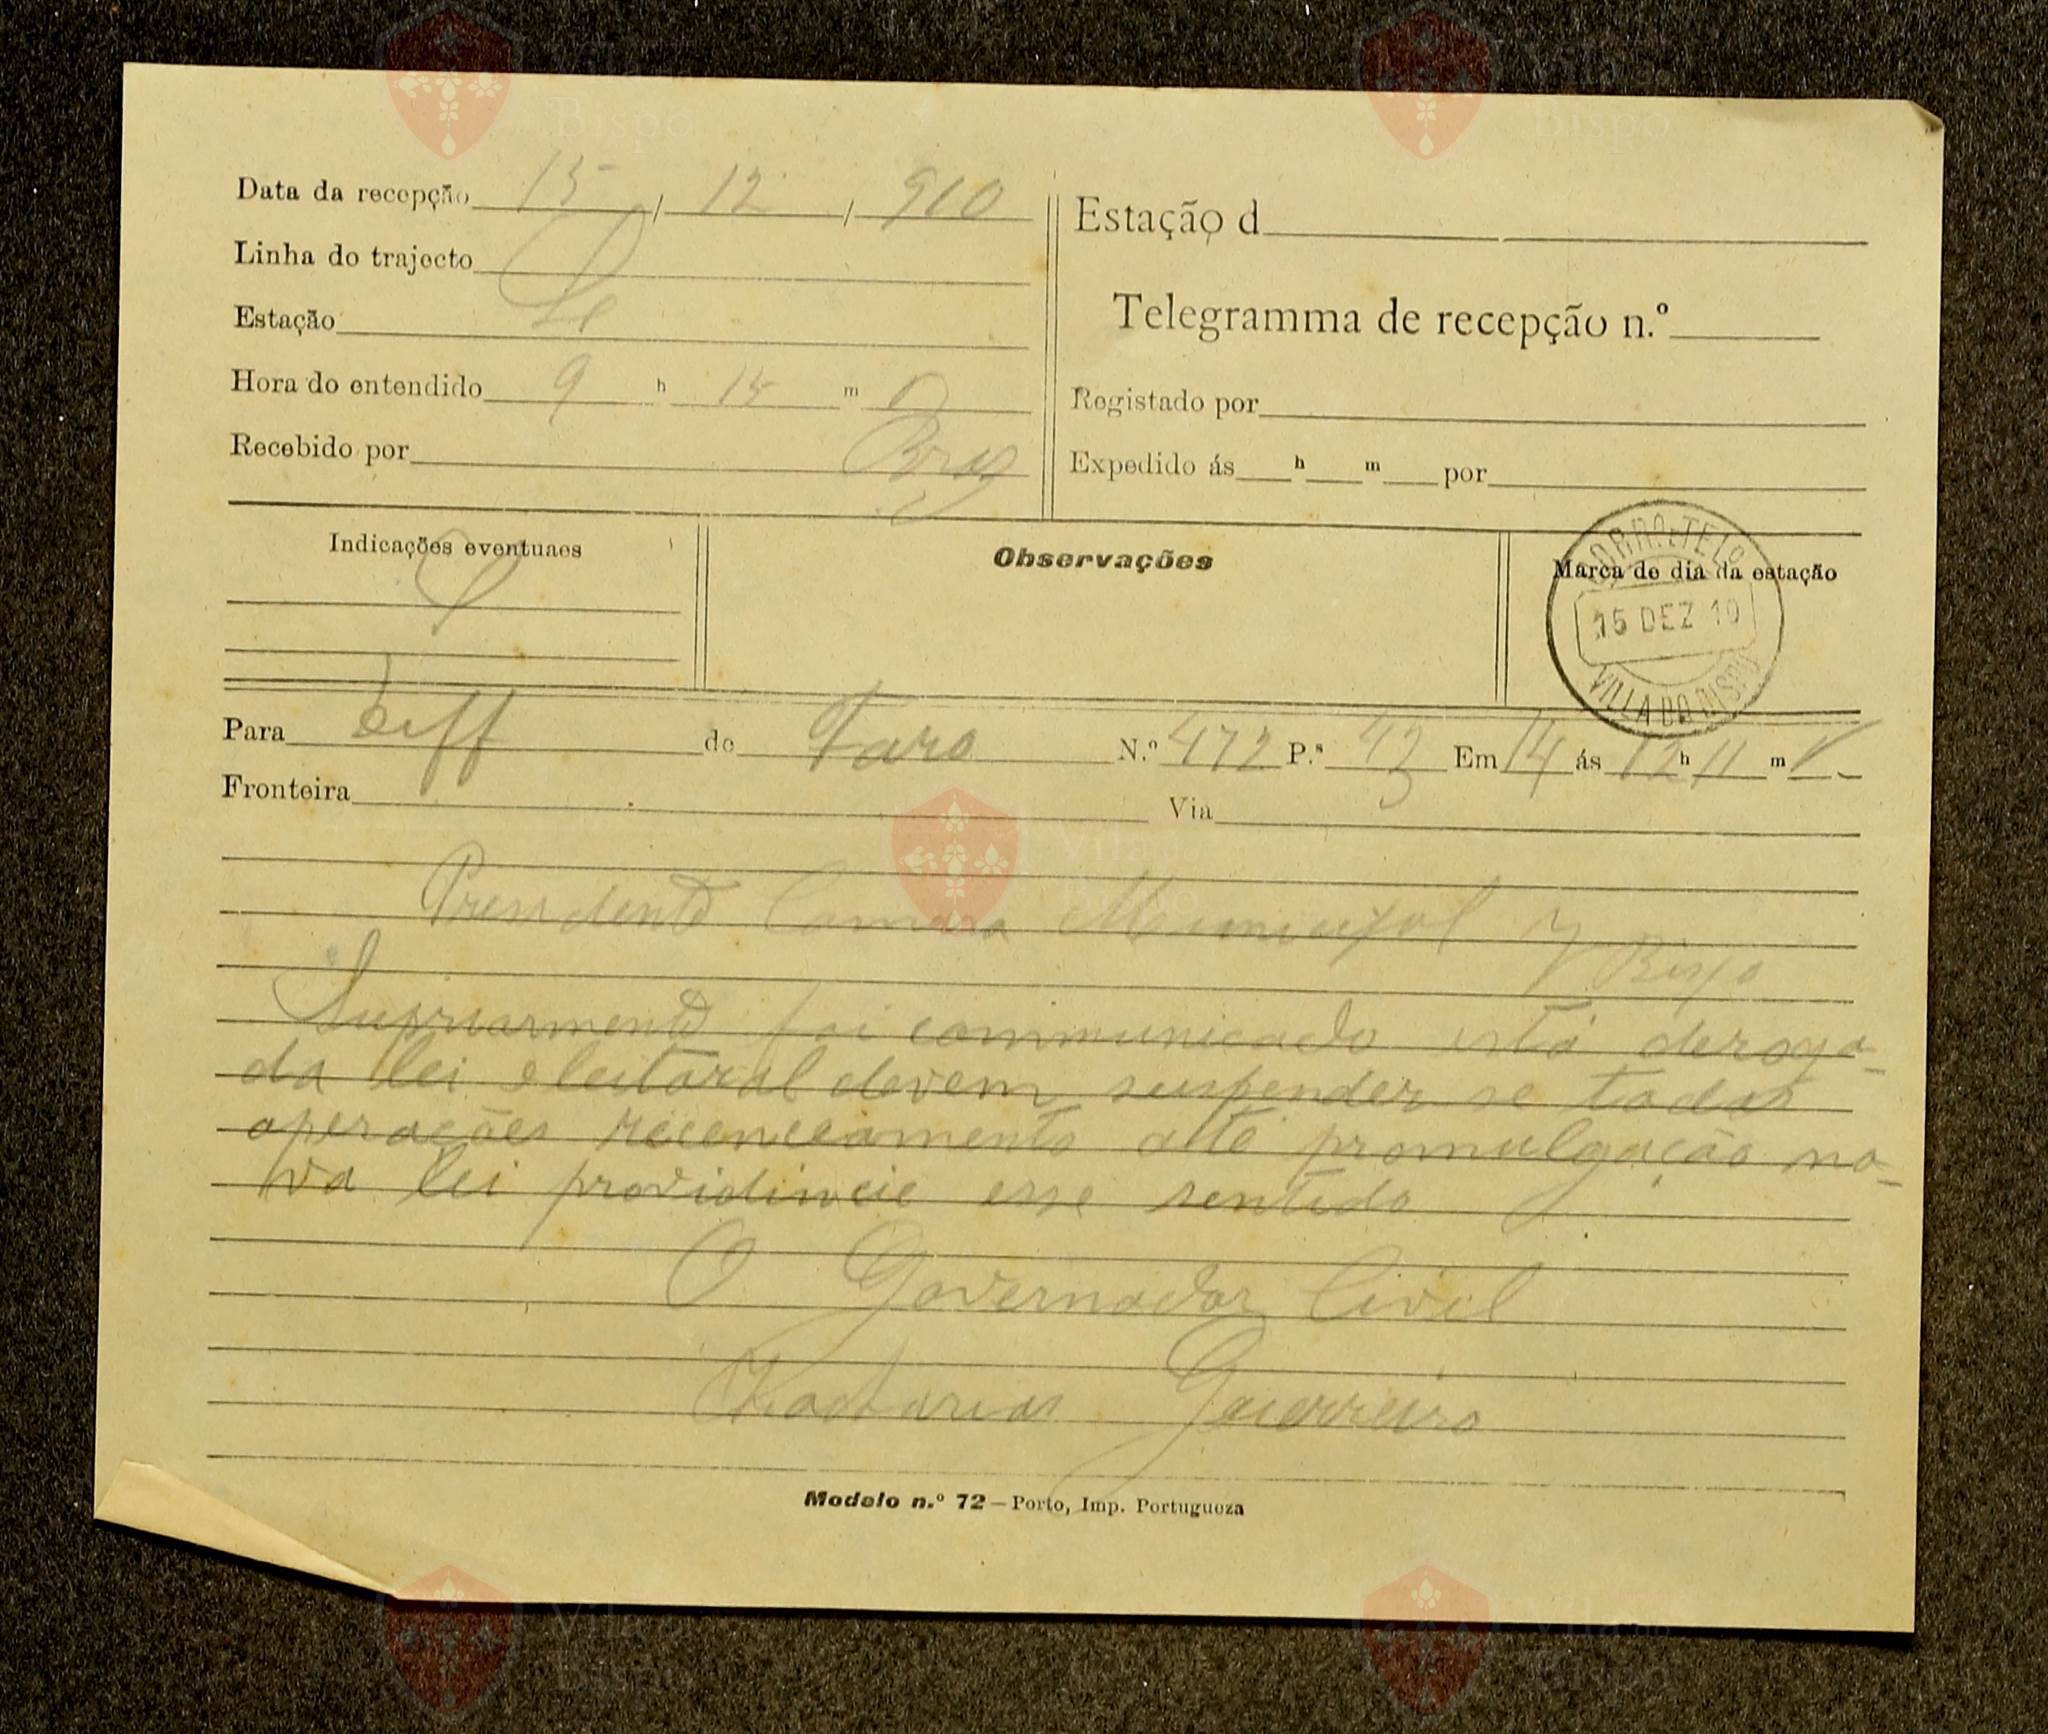 Data da recepção 15 / 12 / 910
Linha do trajecto
Estação
Hora do entendido 9 h 15 m
Recebido por Braz
Estação d
Telegramma de recepção n.º
Registado por
Expedido ás h m por
Indicações eventuaes
Observações
Marca de dia da estação
CORRO E TELO
15 DEZ 10
VILLA DO BISPO
Para de Faro N.º 472 P.s 43 Em 14 ás 12 h 11 m
Fronteira Via
Presidente Camara Municipal V Bispo
Supriormente foi communicado está deroga-
da lei eleitoral devem suspender se todas
operações recenceamento até promulgação no-
va lei providincie esse sentido
O Governador Civil
Zacharias Guerreiro
Modelo n.º 72 — Porto, Imp. Portugueza
Vila do Bispo